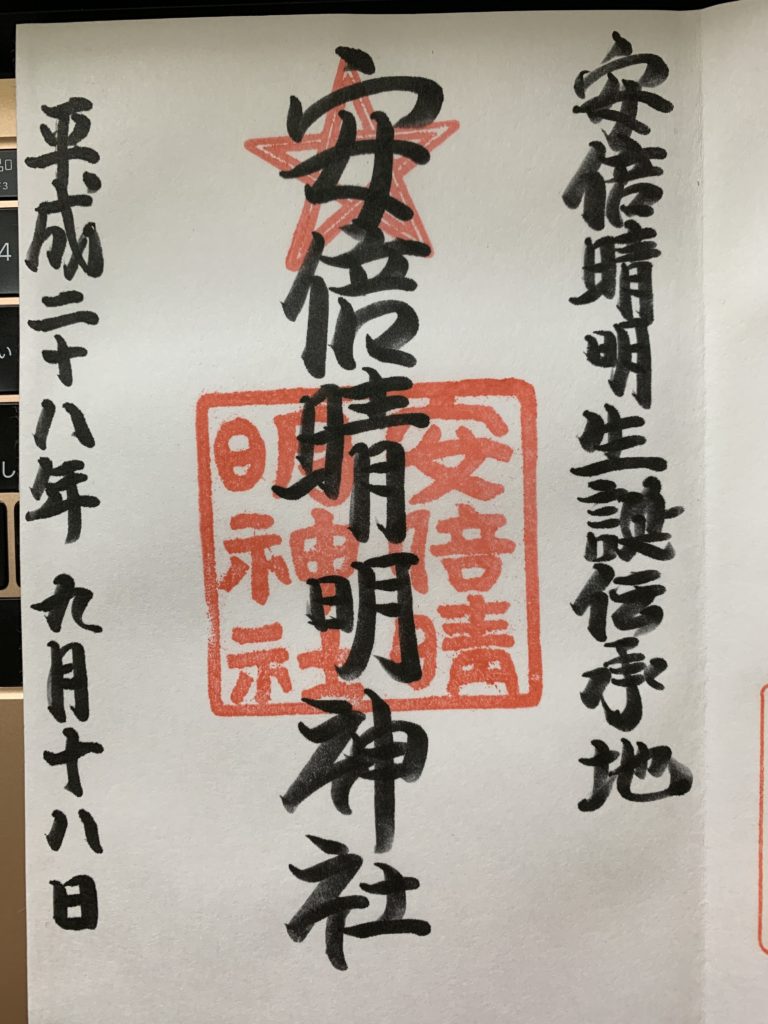 安倍晴明生誕伝承地
安倍晴明神社
安倍晴
明神社
平成二十八年 九月十八日